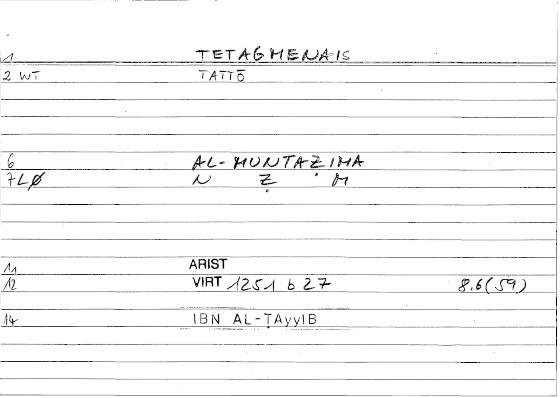 1 TETAGMENAIS
2 WT TATTŌ
6 AL-MUNTAẒIMA
7 LØ N Ẓ M
11 ARIST
12 VIRT 1251 b 27 8.6(59)
14 IBN AL-ṬAyyIB